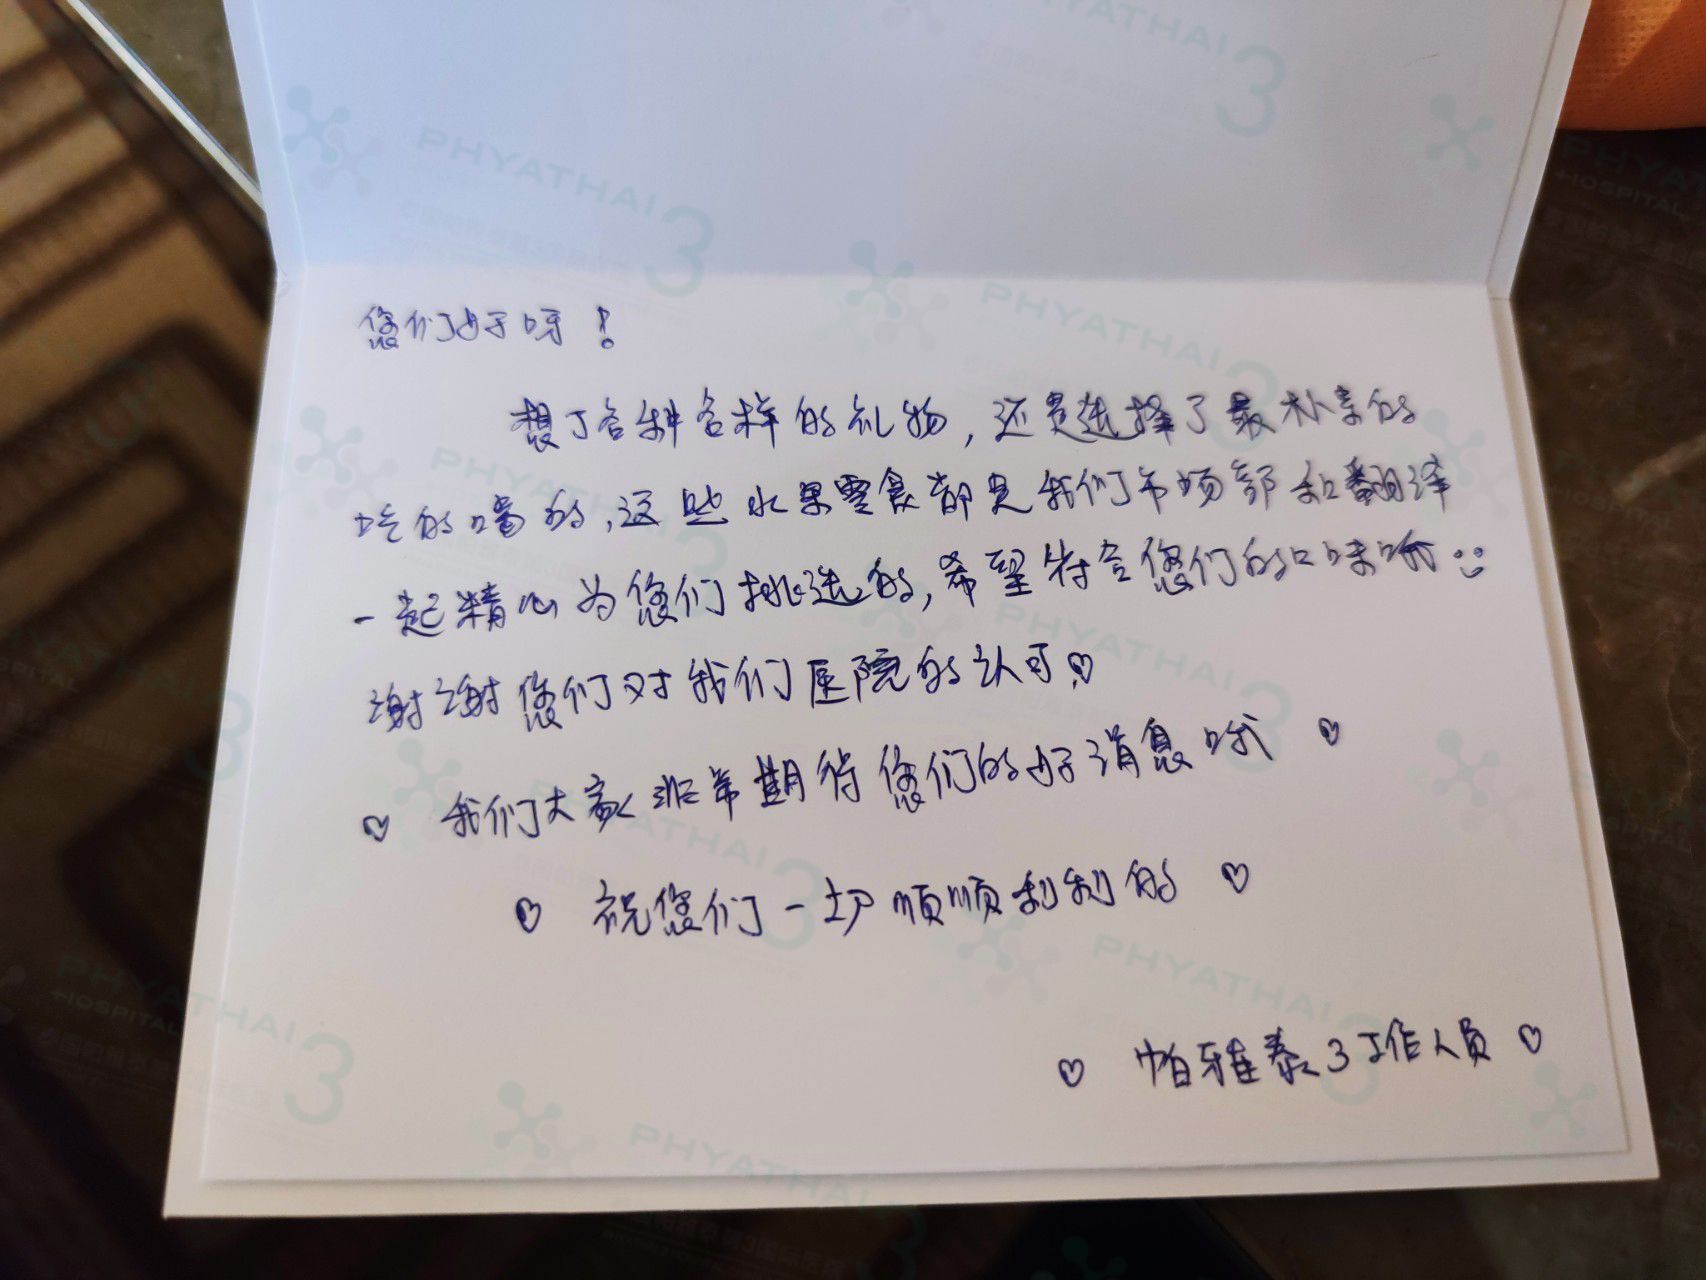 您们好呀！
想了各种各样的礼物，还是选择了最朴素的
吃的喝的，这些水果零食都是我们市场部和翻译
一起精心为您们挑选的，希望符合您们的口味哦:)
谢谢您们对我们医院的认可♡
♡ 我们大家非常期待您们的好消息哦 ♡
♡ 祝您们一切顺顺利利的 ♡
♡ 帕雅泰3工作人员 ♡
PHYATHAI 3
PHYATHAI 3
PHYATHAI 3
PHYATHAI
PHYATHAI 3
PHYATHAI 3
PHYATHAI 3
PHYATHAI
HOSPITAL